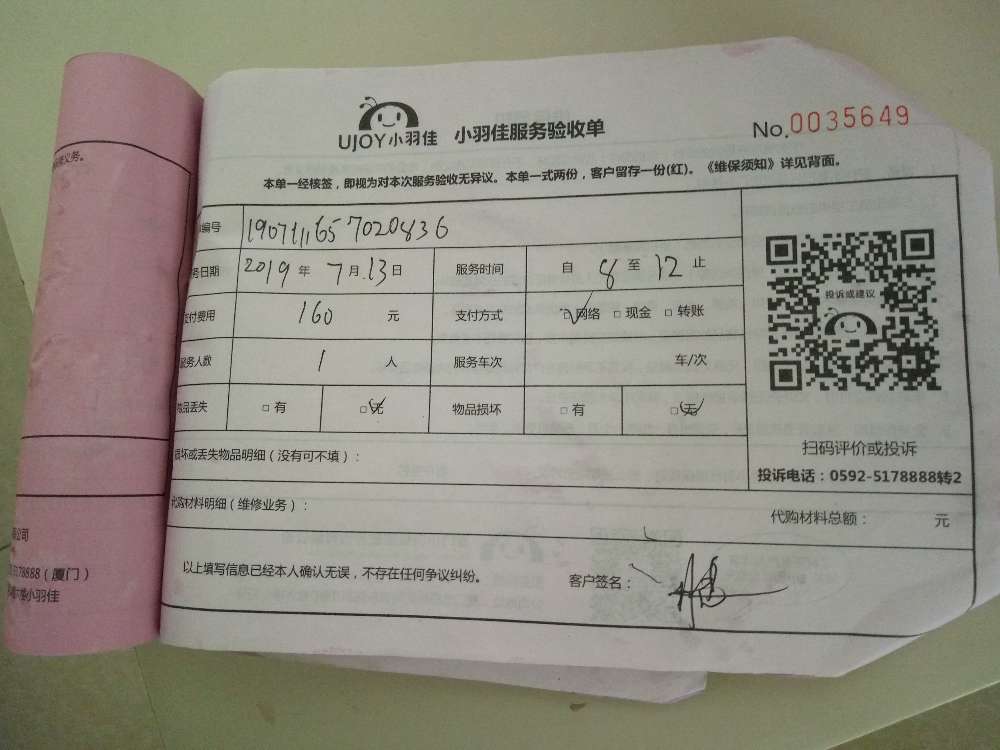 UJOY小羽佳 小羽佳服务验收单 No.0035649
本单一经核签，即视为对本次服务验收无异议。本单一式两份，客户留存一份(红)。《维保须知》详见背面。
编号 190711657020836
务日期 2019年7月13日 服务时间 自8至12止
支付费用 160 元 支付方式 ☑网络 □现金 □转账
服务人数 1 人 服务车次 车/次
物品丢失 □有 ☑无 物品损坏 □有 ☑无
投诉或建议
扫码评价或投诉
投诉电话：0592-5178888转2
损坏或丢失物品明细（没有可不填）：
代购材料明细（维修业务）： 代购材料总额： 元
以上填写信息已经本人确认无误，不存在任何争议纠纷。 客户签名：
义务。
公司
5178888（厦门）
小羽佳